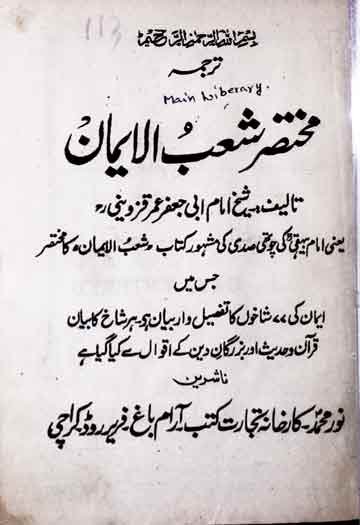 113
بسم اللہ الرحمن الرحیم
ترجمہ
Main Liberary.
مختصر شعب الایمان
تالیف: شیخ امام ابی جعفر عمر قزوینی رح
یعنی امام بیہقی رح کی چوتھی صدی کی مشہور کتاب "شعب الایمان" کا مختصر
جس میں
ایمان کی ۷۷ شاخوں کا تفصیل وار بیان ہے، ہر شاخ کا بیان
قرآن و حدیث اور بزرگان دین کے اقوال سے کیا گیا ہے
ناشرین
نور محمد - کارخانہ تجارت کتب - آرام باغ - فریر روڈ کراچی